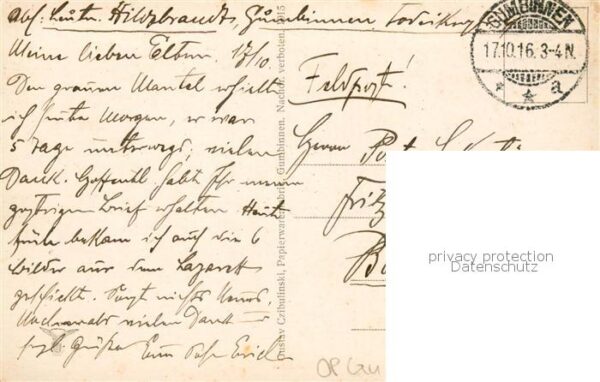 Abs. Leutn. Hildebrandt, Gumbinnen,
Meine lieben Eltern. 17/10.
Den grauen Mantel erhielt
ich heute Morgen, er war
5 Tage unterwegs; vielen
Dank. Hoffentl. habt Ihr meinen
gestrigen Brief erhalten. Heute
früh bekam ich auch die 6
Bilder aus dem Lazarett
geschickt. Sonst nichts Neues.
Nochmals vielen Dank
herzl. Grüße Euer Sohn Erich.
Gustav Czibulinski, Papierwarenhdlg. Gumbinnen. Nachdr. verboten.
GUMBINNEN
17.10.16. 3-4N.
* * a
Feldpost!
Herrn
Fritz
privacy protection
Datenschutz